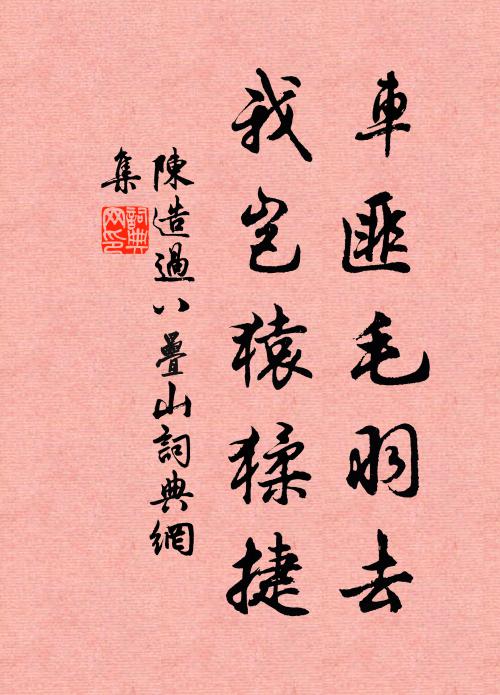 車匪毛羽去
我岂猿猱捷
陳造過八疊山詞典網
集
詞典
网印